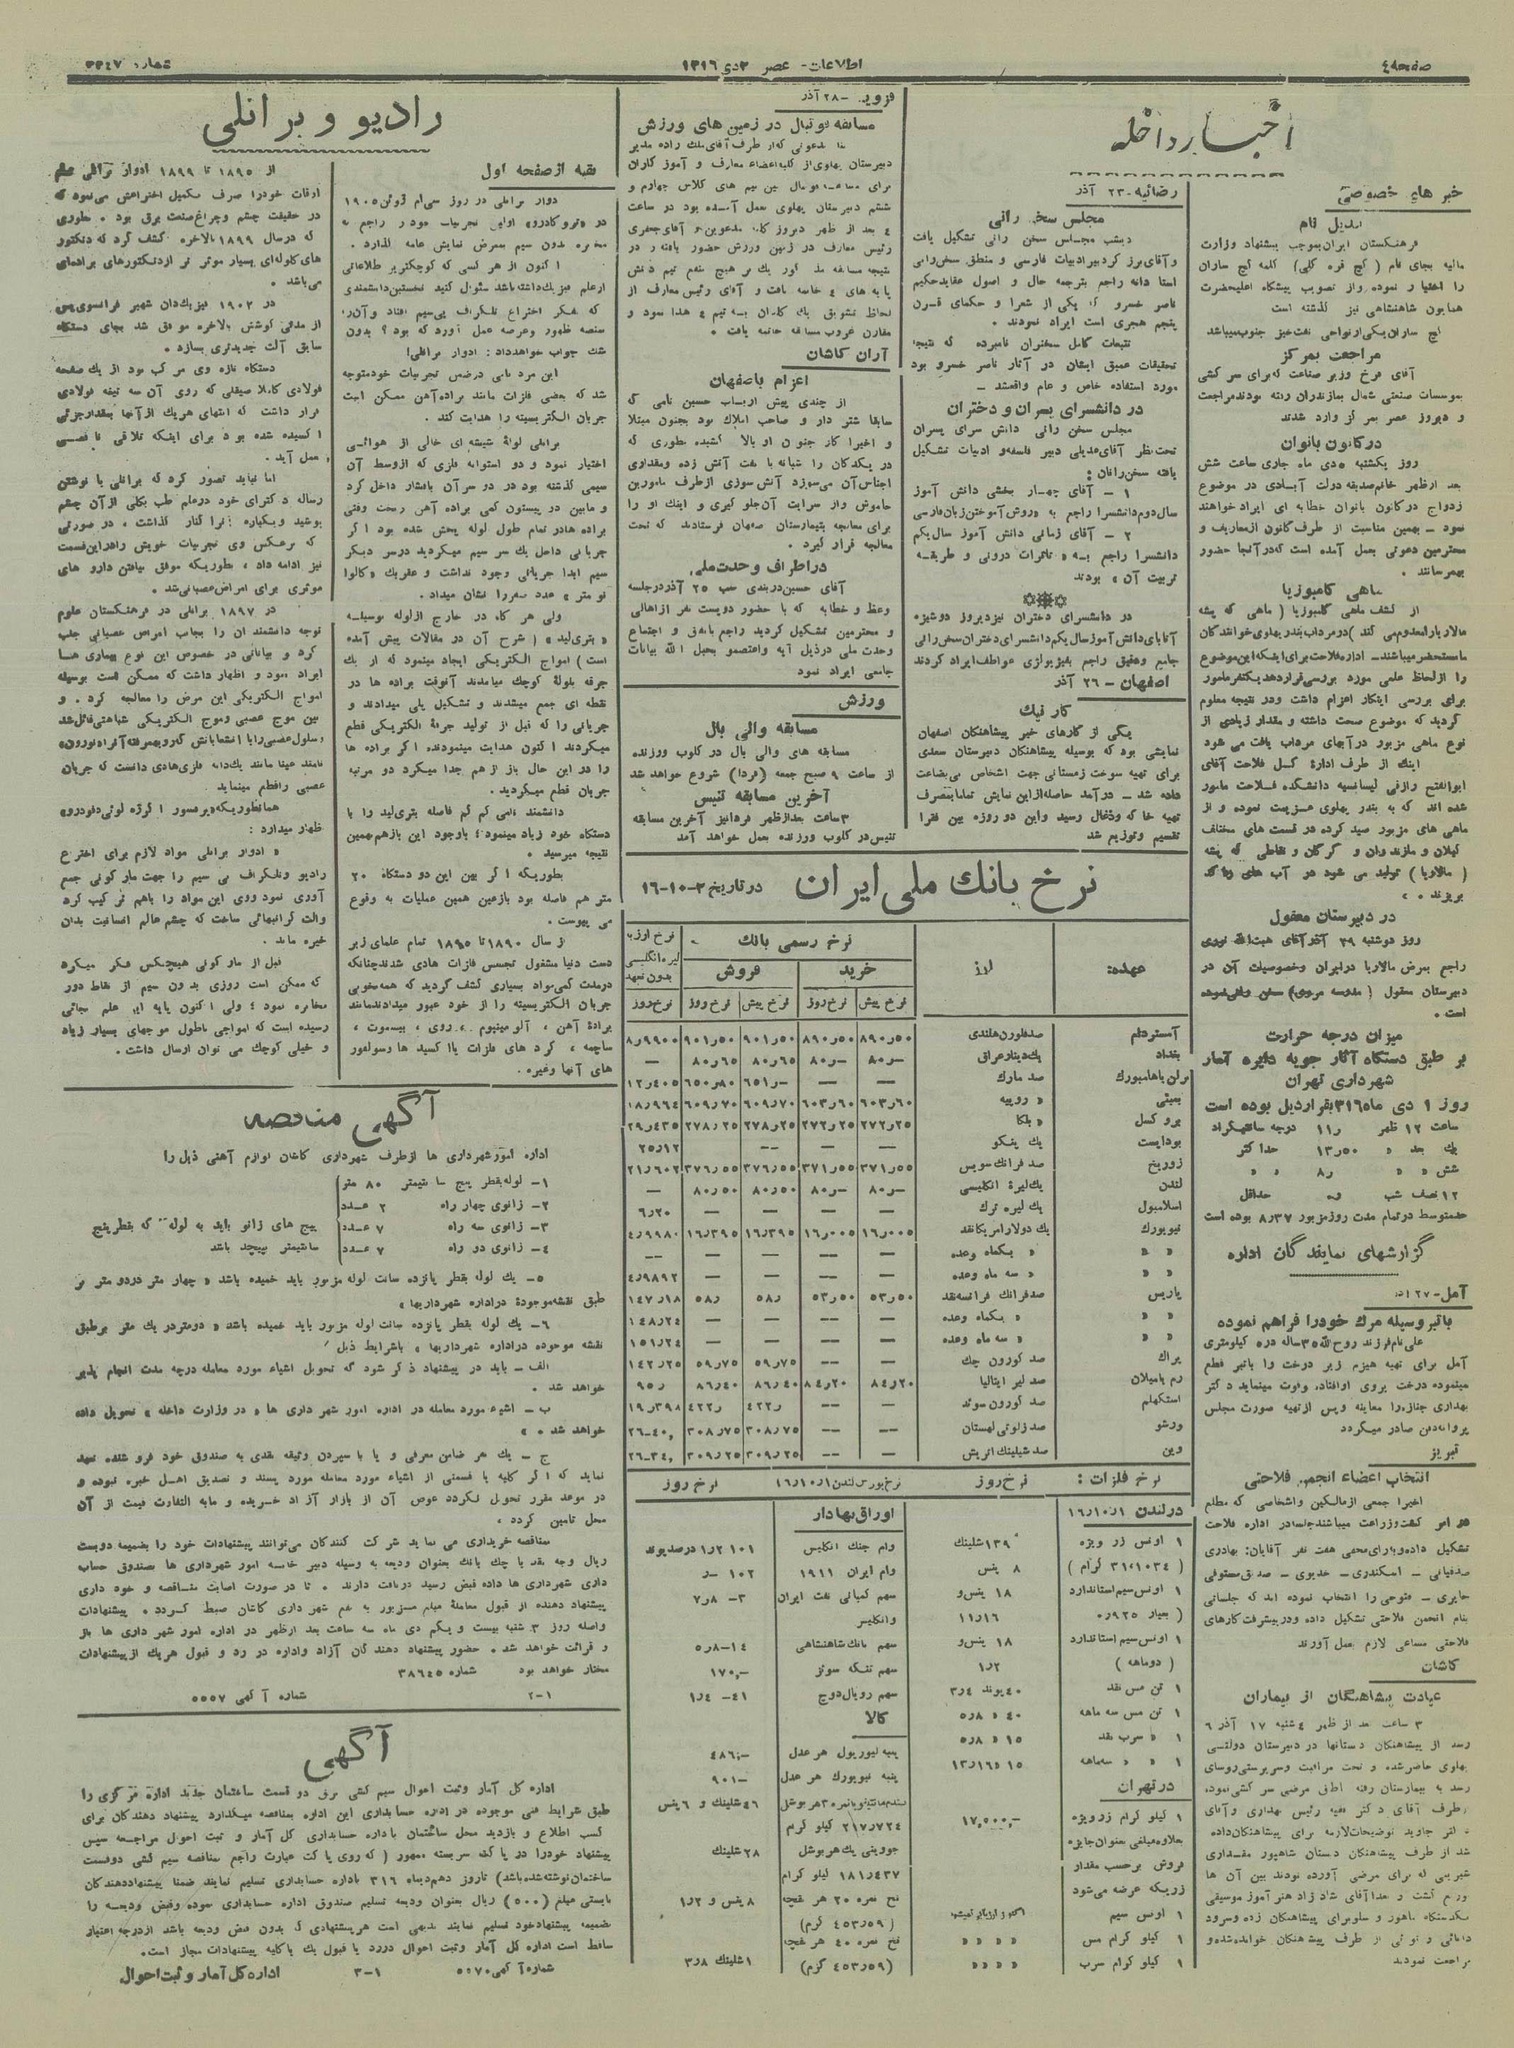 صفحه ٤
اطلاعات - عصر ٢ دی ١٣١٦
شماره ٣٣٤٧
اخبار داخله
خبرهای خصوصی
تبدیل نام
فرهنگستان ایران بموجب پیشنهاد وزارت
مالیه بجای نام (گچ قره گلی) کلمه گچ ساران
را اختیار نموده و از تصویب پیشگاه اعلیحضرت
همایون شاهنشاهی نیز گذشته است
گچ ساران یکی از نواحی نفت خیز جنوب میباشد
مراجعت بمرکز
آقای فرخ وزیر صناعت که برای سرکشی
بموسسات صنعتی شمال بمازندران رفته بودند مراجعت
و دیروز عصر بمرکز وارد شدند
در کانون بانوان
روز یکشنبه ٥ دی ماه جاری ساعت شش
بعد از ظهر خانم صدیقه دولت آبادی در موضوع
ازدواج در کانون بانوان خطابه ای ایراد خواهند
نمود - بهمین مناسبت از طرف کانون از معاریف و
محترمین دعوتی بعمل آمده است که در آنجا حضور
بهمرسانند .
ماهی کامبوزیا
از کشف ماهی کامبوزیا (ماهی که پشه
مالاریا را معدوم می کند) در مرداب بندر پهلوی خوانندگان
ما مستحضر میباشند - اداره فلاحت برای اینکه این موضوع
را از لحاظ علمی مورد بررسی قرار دهد یکنفر مامور
برای بررسی اینکار اعزام داشت و در نتیجه معلوم
گردید که موضوع صحت داشته و مقدار زیادی از
نوع ماهی مزبور در آبهای مرداب یافت می شود
اینک از طرف اداره کل فلاحت آقای
ابوالفتح رازقی لیسانسیه دانشکده فلاحت مامور
شده اند که به بندر پهلوی عزیمت نموده و از
ماهی های مزبور صید کرده در قسمت های مختلف
گیلان و مازندران و گرگان و نقاطی که پشه
(مالاریا) تولید می شود در آب های راکد
بریزند .
در دبیرستان معقول
روز دوشنبه ٢٩ آذر آقای هبت الله نوری
راجع بمرض مالاریا در ایران و خصوصیات آن در
دبیرستان معقول (مدرسه مروی) سخن رانی نموده
است .
میزان درجه حرارت
بر طبق دستگاه آثار جویه دایره آمار
شهرداری تهران
روز ١ دی ماه ٣١٦ بقرار ذیل بوده است
ساعت ١٢ ظهر ١١ر درجه سانتیگراد
یک بعد « ١٣ر٥٠ حداکثر
شش « « ٨ر « «
١٢ نصف شب حداقل
حد متوسط در تمام مدت روز مزبور ٨ر٣٧ بوده است
گزارشهای نمایندگان اداره
آمل - ٢٧ آذر
با تبر وسیله مرگ خود را فراهم نموده
علی نام فرزند روح الله ٣٥ ساله در ٥ کیلومتری
آمل برای تهیه هیزم زیر درخت را با تبر قطع
مینموده درخت بروی او افتاده فوت مینماید دکتر
بهداری جنازه را معاینه و پس از تهیه صورت مجلس
پروانه دفن صادر میگردد
تبریز
انتخاب اعضاء انجمن فلاحتی
اخیرا جمعی از مالکین و اشخاصی که مطلع
در امر کشت و زراعت میباشند جلسه در اداره فلاحت
تشکیل داده و با رای مخفی هفت نفر آقایان: بهادری
صدقیانی - اسکندری - خدیوی - صدیق مستوفی
حایری - فتوحی را انتخاب نموده اند که جلساتی
بنام انجمن فلاحتی تشکیل داده و در پیشرفت کارهای
فلاحتی مساعی لازم بعمل آورند
کاشان
عیادت پیشاهنگان از بیماران
٣ ساعت بعد از ظهر ٤ شنبه ١٧ آذر ٦
رسد از پیشاهنگان دستانها در دبیرستان دولتی
پهلوی حاضر شده و تحت مراقبت و سرپرستی روسای
رسد به بیمارستان رفته اطاق مرضی سرکشی نموده
از طرف آقای دکتر فقیه رئیس بهداری و آقای
دکتر جاوید توضیحات لازمه برای پیشاهنگان داده
شد از طرف پیشاهنگان دبستان شاهپور مقداری
شیرینی که برای مرضی آورده بودند بین آن ها
توزیع گشت و بعدا آقای شادزاد هنرآموز موسیقی
رضائیه - ٢٣ آذر
مجلس سخن رانی
دیشب مجلس سخن رانی تشکیل یافت
و آقای برزگر دبیر ادبیات فارسی و منطق سخن رانی
استادانه راجع بترجمه حال و اصول عقاید حکیم
ناصر خسرو که یکی از شعرا و حکمای قرن
پنجم هجری است ایراد نمودند .
تتبعات کامل سخنران نامبرده که نتیجه
تحقیقات عمیق ایشان در آثار ناصر خسرو بود
مورد استفاده خاص و عام واقعشد -
در دانشسرای پسران و دختران
مجلس سخن رانی دانش سرای پسران
تحت نظر آقای عدیلی دبیر فلسفه و ادبیات تشکیل
یافته سخن رانان:
١ - آقای چهار بخشی دانش آموز
سال دوم دانشسرا راجع به «روش آموختن زبان فارسی
٢ - آقای زمانی دانش آموز سال یکم
دانشسرا راجع به «تاثرات درونی و طریقه
تربیت آن» بودند
در دانشسرای دختران نیز دیروز دوشیزه
آتابای دانش آموز سال یکم دانشسرای دختران سخن رانی
جامع و دقیق راجع بفیزیولژی عواطف ایراد کردند
اصفهان - ٢٦ آذر
کار نیک
یکی از کارهای خیر پیشاهنگان اصفهان
نمایشی بود که بوسیله پیشاهنگان دبیرستان سعدی
برای تهیه سوخت زمستانی جهت اشخاص بی بضاعت
داده شد - درآمد حاصله از این نمایش تماما بمصرف
تهیه خاکه و ذغال رسید و این دو روزه بین فقرا
تقسیم و توزیع شد
قزوین - ٢٨ آذر
مسابقه فوتبال در زمین های ورزش
بنا بدعوتی که از طرف آقای ملک زاده مدیر
دبیرستان پهلوی از کلیه اعضاء معارف و آموزگاران
برای مسابقه فوتبال بین تیم های کلاس چهارم و
ششم دبیرستان پهلوی بعمل آمده بود در ساعت
٤ بعد از ظهر دیروز کلیه مدعوین و آقای جعفری
رئیس معارف در زمین ورزش حضور یافته و در
نتیجه مسابقه مذکور یک بر هیچ بنفع تیم دانش
پایه های ٤ خاتمه یافت و آقای رئیس معارف از
لحاظ تشویق یک گلدان به تیم ٤ اهدا نمود و
مقارن غروب مسابقه خاتمه یافت .
آران کاشان
اعزام باصفهان
از چندی پیش ارباب حسین نامی که
سابقا شتردار و صاحب املاک بود بجنون مبتلا
و اخیرا کار جنون او بالا کشیده بطوری که
در یکدکان را شبانه با نفت آتش زده و مقداری
اجناس آن می سوزد آتش سوزی از طرف مامورین
خاموش و از سرایت آن جلوگیری و اینک او را
برای معالجه بتیمارستان اصفهان فرستادند که تحت
معالجه قرار گیرد .
در اطراف وحدت ملی
آقای حسین دربندی شب ٢٥ آذر در جلسه
وعظ و خطابه که با حضور دویست نفر از اهالی
و محترمین تشکیل گردید راجع باتفاق و اجتماع
وحدت ملی در ذیل آیه واعتصموا بحبل الله بیانات
جامعی ایراد نمود
ورزش
مسابقه والی بال
مسابقه های والی بال در کلوب ورزنده
از ساعت ٩ صبح جمعه (فردا) شروع خواهد شد
آخرین مسابقه تنیس
٣ ساعت بعد از ظهر فردا نیز آخرین مسابقه
تنیس در کلوب ورزنده بعمل خواهد آمد
رادیو و برانلی
بقیه از صفحه اول
ادوار برانلی در روز سی ام ژوئن ١٩٠٥
در «تروکادرو» اولین تجربیات خود را راجع به
مخابره بدون سیم بمعرض نمایش عامه گذارد .
اکنون از هر کسی که کوچکترین اطلاعاتی
از علم فیزیک داشته باشد سئوال کنید نخستین دانشمندی
که بفکر اختراع تلگراف بی سیم افتاد و آن را
بمنصه ظهور و عرصه عمل آورد که بود ؟ بدون
شک جواب خواهد داد : ادوار برانلی!
این مرد نامی در ضمن تجربیات خود متوجه
شد که بعضی فلزات مانند براده آهن ممکن است
جریان الکتریسیته را هدایت کند.
برانلی لوله شیشه ای خالی از هوائی
اختیار نمود و دو استوانه فلزی که از وسط آن
سیمی گذشته بود در دو سر آن بافشار داخل کرد
و مابین دو پیستون کمی براده آهن ریخت وقتی
براده ها در تمام طول لوله پخش شده بود اگر
جریانی داخل یک سر سیم میگردید در سر دیگر
سیم ابدا جریانی وجود نداشت و عقربک «گالوا
نومتر» عدد صفر را نشان میداد.
ولی هر گاه در خارج از لوله بوسیله
«بتری لید» (شرح آن در مقالات پیش آمده
است) امواج الکتریکی ایجاد مینمود که از یک
جرقه بلوله کوچک میامدند آنوقت براده ها در
نقطه ای جمع میشدند و تشکیل پلی میدادند و
جریانی را که قبل از تولید جرقه الکتریکی قطع
میکردند اکنون هدایت مینمودند ، اگر براده ها
را در این حال باز از هم جدا میکرد دو مرتبه
جریان قطع میگردید.
دانشمند نامی کم کم فاصله بتری لید را با
دستگاه خود زیاد مینمود ؛ باوجود این بازهم بهمین
نتیجه میرسید .
بطوریکه اگر بین این دو دستگاه ٢٠
متر هم فاصله بود بازعین همین عملیات به وقوع
می پیوست .
از سال ١٨٩٠ تا ١٨٩٥ تمام علمای زبر
دست دنیا مشغول تجسس فلزات هادی شدند چنانکه
در مدت کمی مواد بسیاری کشف گردید که همه بخوبی
جریان الکتریسیته را از خود عبور میدادند مانند
براده آهن ، آلومینیوم ، روی ، بیسموت ،
ساچمه ، گرد های فلزات یا اکسید ها و سولفور
های آنها و غیره .
از ١٨٩٥ تا ١٨٩٩ ادوار برانلی تمام
اوقات خود را صرف تکمیل اختراعش می نمود که
در حقیقت چشم و چراغ صنعت برق بود . بطوری
که در سال ١٨٩٩ بالاخره کشف کرد که دتکتور
های گلوله ای بسیار موثرتر از دتکتورهای براده ای
می باشد .
در ١٩٠٢ فیزیک دان شهیر فرانسوی پس
از مدتی کوشش بالاخره موفق شد بجای دستگاه
سابق آلت جدیدتری بسازد .
دستگاه تازه وی مرکب بود از یک صفحه
فولادی کاملا صیقلی که روی آن سه تیغه فولادی
قرار داشت که انتهای هریک از آنها بمقدار جزئی
اکسیده شده بود برای اینکه تلاقی ناقصی
بعمل آید .
اما نباید تصور کرد که برانلی با نوشتن
رساله دکترای خود در علم طب بکلی از آن چشم
پوشید و یکباره آنرا کنار گذاشت ، در صورتی
که برعکس وی تجربیات خویش را در این قسمت
نیز ادامه داد ، بطوریکه موفق بیافتن دارو های
موثری برای امراض عصبانی شد .
در ١٨٩٧ برانلی در فرهنگستان علوم
توجه دانشمندان را بجانب امراض عصبانی جلب
کرد و بیاناتی در خصوص این نوع بیماری ها
ایراد نمود و اظهار داشت که ممکن است بوسیله
امواج الکتریکی این مرض را معالجه کرد . و
بین موج عصبی و موج الکتریکی شباهتی قائل شد
عصبی را قطع مینماید
همانطوریکه پرفسور
اظهار میدارد :
« ادوار برانلی مواد لازم برای اختراع
رادیو و تلگراف بی سیم را جهت مارکونی جمع
آوری نمود و وی این مواد را باهم ترکیب کرد
و آلت گرانبهائی ساخت که چشم عالم انسانیت بدان
خیره ماند .
قبل از مارکونی هیچکس فکر نمیکرد
که ممکن است روزی بدون سیم از نقاط دور
مخابره نمود ؛ ولی اکنون پایه این علم بجائی
رسیده است که امواجی باطول موجهای بسیار زیاد
و خیلی کوچک می توان ارسال داشت .
نرخ بانک ملی ایران
در تاریخ ٢-١٠-١٦
عهده: | ارز | نرخ رسمی بانک | نرخ ارز به لیره انگلیسی بدون تعهد
خرید | فروش
نرخ پیش | نرخ روز | نرخ پیش | نرخ روز | نرخ روز
آمستردام | صد فلورن هلندی | ٨٩٠ر٥٠ | ٨٩٠ر٥٠ | ٩٠١ر٥٠ | ٩٠١ر٥٠ | ٨ر٩٩٠٠
بغداد | یک دینار عراق | ٨٠ر— | ٨٠ر— | ٨٠ر٦٥ | ٨٠ر٦٥ | —
برلن یا هامبورک | صد مارک | — | — | ٦٥١ر— | ٦٥٠ر٨٠ | ١٢ر٤٠٥
بمبئی | « روپیه | ٦٠٣ر٦٠ | ٦٠٣ر٦٠ | ٦٠٩ر٧٠ | ٦٠٩ر٧٠ | ١٨ر٩٦٤
بروکسل | « بلکا | ٢٧٢ر٢٥ | ٢٧٢ر٢٥ | ٢٧٨ر٢٥ | ٢٧٨ر٢٥ | ٢٩ر٤٣٥
بوداپست | یک پنگو | — | — | — | — | ٢٥ر١٢
زوریخ | صد فرانک سویس | ٣٧١ر٥٥ | ٣٧١ر٥٥ | ٣٧٦ر٥٥ | ٣٧٦ر٥٥ | ٢١ر٦٠٢
لندن | یک لیره انگلیسی | ٨٠ر— | ٨٠ر— | ٨٠ر٥٠ | ٨٠ر٥٠ | —
اسلامبول | یک لیره ترک | — | — | — | — | ٦ر٢٠
نیویورک | یک دولار امریکا نقد | ١٦ر٠٠٥ | ١٦ر٠٠٥ | ١٦ر٣٩٥ | ١٦ر٣٩٥ | ٤ر٩٩٨٠
« « | « یکماه وعده | — | — | — | — | —
« « | « سه ماه وعده | — | — | — | — | ٤ر٩٨٩٢
پاریس | صد فرانک فرانسه نقد | ٥٣ر٥٠ | ٥٣ر٥٠ | ٥٨ر | ٥٨ر | ١٤٧ر١٨
« « | « یکماه وعده | ١٤٨ر٢٤
« « | « سه ماه وعده | ١٥١ر٢٤
پراک | صد کورون چک | — | — | ٥٩ر٧٥ | ٥٩ر٧٥ | ١٤٢ر٢٥
رم یا میلان | صد لیر ایتالیا | ٨٤ر٢٠ | ٨٤ر٢٠ | ٨٦ر٤٠ | ٨٦ر٤٠ | ٩٥ر
استکهلم | صد کورون سوئد | — | — | ٤٢٢ر | ٤٢٢ر | ١٩ر٣٩٨
ورشو | صد زلوتی لهستان | — | — | ٣٠٨ر٧٥ | ٣٠٨ر٧٥ | ٢٦ر٤٠
وین | صد شیلینک اتریش | — | — | ٣٠٩ر٢٥ | ٣٠٩ر٢٥ | ٢٦ر٣٤
نرخ فلزات : | نرخ روز | نرخ بورس لندن ١٦/١٠/١ | نرخ روز
در لندن ١٦/١٠/١
١ اونس زر ویژه | ١٣٩ شلینک
(٣١،١٠٣٤ گرام) | ٨ پنس
١ اونس سیم استاندارد | ١٨ پنس و
(بعیار ٠٫٩٢٥) | ١١ر١٦
١ اونس سیم استاندارد | ١٨ پنس و
(دوماهه) | ١ر٢
١ تن مس نقد | ٤٠ پوند ٣ر٤
١ تن مس سه ماهه | ٤٠ « ٥ر٨
١ « سرب نقد | ١٥ « ٥ر٨
١ « « سه ماهه
در تهران
١ کیلو گرام زر ویژه | ١٧,٠٠٠
بعلاوه مبلغی بعنوان جایزه
فروش برحسب مقدار
زریکه عرضه می شود
١ اونس سیم
١ کیلو گرام مس | « « « «
١ کیلو گرام سرب | « « « «
اوراق بهادار
وام جنک انگلیس | ١٠١ ١ر٢ درصد پوند
وام ایران ١٩١١ | ١٠٢
سهم کمپانی نفت ایران وانگلیس | ٣- ٧ر٨
سهم بانک شاهنشاهی | ١٤-٥ر٨
سهم تنگه سوئز | ١٧٠٫-
سهم رویال دوج | ٤١- ١ر٤
کالا
پنبه لیورپول هر عدل | ٤٨٦٫-
پنبه نیویورک هر عدل | ٩٠١-
٤٦ شلینک و ٦ پنس
٢١٧ر٧٢٤ کیلو گرام
جو وینی پک هر بوشل | ٢٨ شلینک
١٨١ر٤٣٧ کیلو گرام
نخ نمره ٢٠ هر بقچه | ٨ پنس و ١ر٢
(٤٥٣ر٥٩ گرم)
نخ نمره ٤٠ هر بقچه
(٤٥٣ر٥٩ گرم) | ١ شلینک ٣ر٨
آگهی مناقصه
اداره امور شهرداری ها از طرف شهرداری کاشان لوازم آهنی ذیل را
١- لوله بقطر پنج سانتیمتر ٨٠ متر
٢- زانوی چهار راه ٢ عدد
٣- زانوی سه راه ٧ عدد
٤- زانوی دو راه ٧ عدد
پیچ های زانو باید به لوله که بقطر پنج
سانتیمتر بپیچد باشد
٥- یک لوله بقطر پانزده سانت لوله مزبور باید خمیده باشد « چهار متر در دو متر بر
طبق نقشه موجوده در اداره شهرداریها »
٦- یک لوله بقطر پانزده سانت لوله مزبور باید خمیده باشد « دو متر در یک متر بر طبق
نقشه موجوده در اداره شهرداریها » باشرایط ذیل :
الف - باید در پیشنهاد ذکر شود که تحویل اشیاء مورد معامله در چه مدت انجام پذیر
خواهد شد .
ب - اشیاء مورد معامله در اداره امور شهرداری ها « در وزارت داخله » تحویل داده
خواهد شد .
ج - یک هر ضامن معرفی و یا با سپردن وثیقه نقدی به صندوق خود فروشنده تعهد
نماید که اگر کلیه یا قسمتی از اشیاء مورد معامله مورد پسند و تصدیق اهل خبره نبوده و
در موعد مقرر تحویل نگردد عوض آن از بازار آزاد خریده و مابه التفاوت قیمت از آن
محل تامین گردد ،
مناقصه خریداری می نماید شرکت کنندگان می توانند پیشنهادات خود را بضمیمه دویست
ریال وجه نقد یا چک بانک بعنوان ودیعه به وسیله دبیرخانه امور شهرداری ها بصندوق حساب
داری شهرداری ها داده قبض رسید دریافت دارند . تا در صورت اصابت مناقصه و خودداری
پیشنهاد دهنده از قبول معامله مبلغ مزبور به نفع شهرداری کاشان ضبط گردد . پیشنهادات
واصله روز ٣ شنبه بیست و یکم دی ماه سه ساعت بعد از ظهر در اداره امور شهرداری ها باز
و قرائت خواهد شد . حضور پیشنهاد دهندگان آزاد و اداره در رد و قبول هریک از پیشنهادات
مختار خواهد بود شماره ٣٨٦٤٥
١-٢ شماره آگهی ٥٥٥٧
آگهی
اداره کل آمار و ثبت احوال سیم کشی برق دو قسمت ساختمان جدید اداره مرکزی را
طبق شرایط فنی موجوده در اداره حسابداری این اداره بمناقصه میگذارد پیشنهاد دهندگان برای
کسب اطلاع و بازدید محل ساختمان باداره حسابداری کل آمار و ثبت احوال مراجعه سپس
پیشنهاد خود را در پاکت سربسته ممهور (که روی پاکت عبارت راجع بمناقصه سیم کشی دو قسمت
ساختمان نوشته شده باشد) تا روز دهم دیماه ٣١٦ باداره حسابداری تسلیم نمایند ضمنا پیشنهاد دهندگان
بایستی مبلغ (٥٠٠) ریال بعنوان ودیعه تسلیم صندوق اداره حسابداری نموده و قبض ودیعه را
بضمیمه پیشنهاد خود تسلیم نمایند بدیهی است هر پیشنهادی که بدون قبض ودیعه باشد از درجه اعتبار
ساقط است اداره کل آمار و ثبت احوال در رد یا قبول یک یا کلیه پیشنهادات مجاز است.
شماره آگهی ٥٥٧٠ ١-٣ اداره کل آمار و ثبت احوال